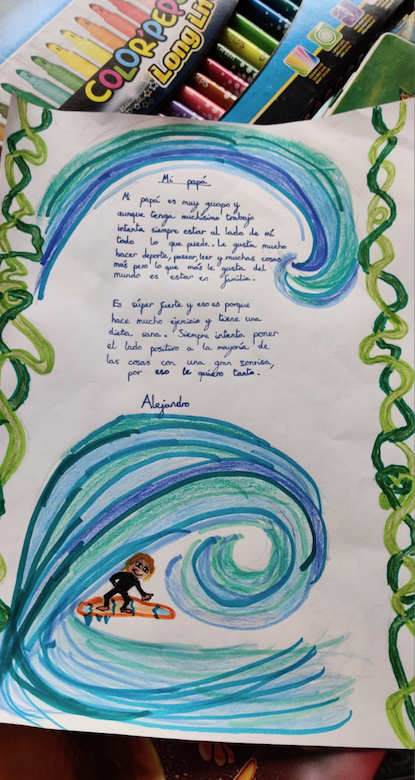 COLOR'PEP
Long Li
Mi papá
Mi papá es muy guapo y
aunque tenga muchísimo trabajo
intenta siempre estar al lado de mí
todo lo que puede. Le gusta mucho
hacer deporte, pasear, leer y muchas cosas
más pero lo que más le gusta del
mundo es estar en familia.
Es súper fuerte y eso es porque
hace mucho ejercicio y tiene una
dieta sana. Siempre intenta poner
el lado positivo a la mayoría de
las cosas con una gran sonrisa,
por eso le quiero tanto.
Alejandro